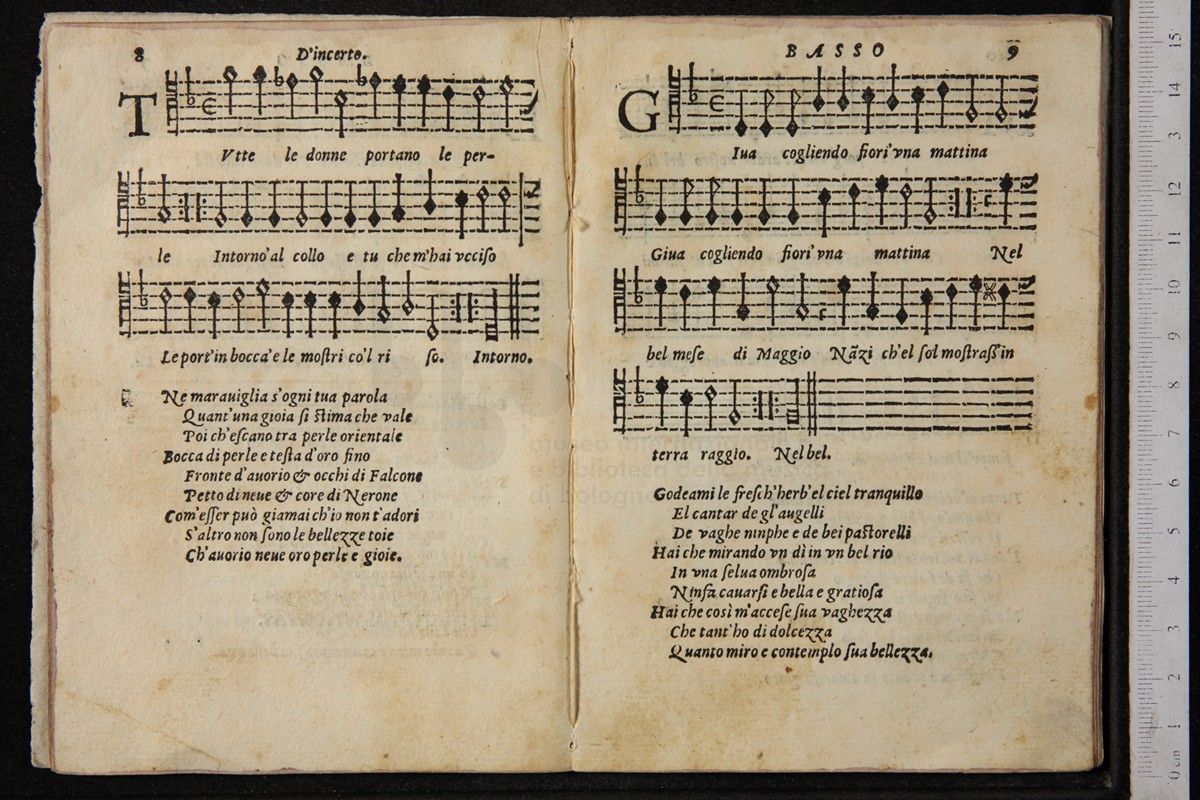 8 D'incerto.
TVtte le donne portano le per-
le Intorno'al collo e tu che m'hai vcciſo
Le port'in bocca'e le moſtri co'l ri ſo. Intorno.
Ne marauiglia s'ogni tua parola
Quant'una gioia ſi ſtima che vale
Poi ch'eſcano tra perle orientale
Bocca di perle e teſta d'oro fino
Fronte d'auorio & occhi di Falcone
Petto di neue & core di Nerone
Com'eſſer può giamai ch'io non t'adori
S'altro non ſono le bellezze toie
Ch'auorio neue oro perle e gioie.
BASSO 9
GIua cogliendo fiori'vna mattina
Giua cogliendo fiori'vna mattina Nel
bel meſe di Maggio Nãzi ch'el ſol moſtraſſ'in
terra raggio. Nel bel.
Godeami le freſch'herb'el ciel tranquillo
El cantar de gl'augelli
De vaghe ninphe e de bei paſtorelli
Hai che mirando vn dì in vn bel rio
In vna ſelua ombroſa
Ninfa cauarſi e bella e gratioſa
Hai che così m'acceſe ſua vaghezza
Che tant'ho di dolcezza
Quanto miro e contemplo ſua bellezza.
museo
e biblioteca della musica
di bologna
0 cm 1 2 3 4 5 6 7 8 9 10 11 12 13 14 15